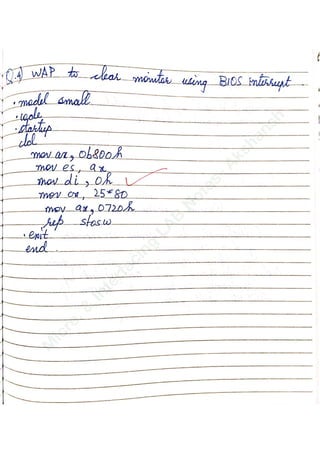 Q.4) WAP to clear monitor using BIOS interrupt.
.model small
.code
.startup
cld
mov ax, 0b800h
mov es, ax
mov di, 0h
mov cx, 25*80
mov ax, 0720h
rep stosw
.exit
end.
Micro. & Interfacing LAB Notes, Akshansh